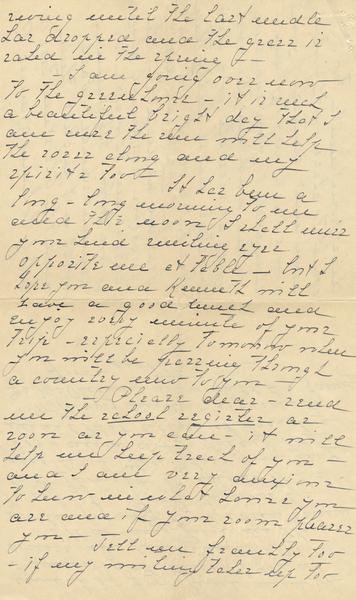 rising until the last needle
has dropped and the grass is
raked in the spring —
— I am going over now
to the greenhouse — it is such
a beautiful bright day that I
am sure the sun will help
the roses along and my
spirits too —
It has been a
long - long morning to me
and this noon I shall miss
your kind smiling eyes
opposite me at table — but I
hope you and Kenneth will
have a good lunch and
enjoy every minute of your
trip — especially tomorrow when
you will be passing through
a country new to you —
— Please dear — send
me the school register as
soon as you can — it will
help me keep track of you —
and I am very anxious
to know in what house you
are and if your room pleases
you — Tell me frankly too
— if my writing takes up too